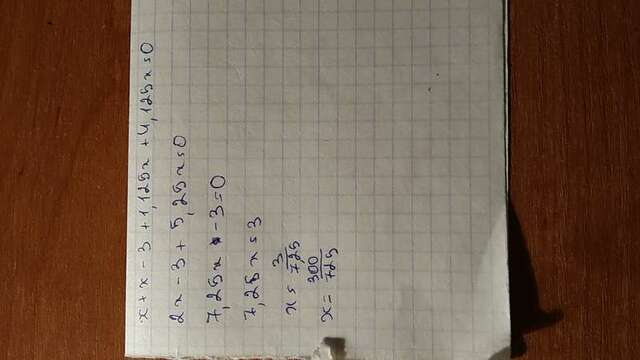 x + x - 3 + 1,125x + 4,125x = 0
2x - 3 + 5,25x = 0
7,25x - 3 = 0
7,25x = 3
x = 3/725
x = 300/725